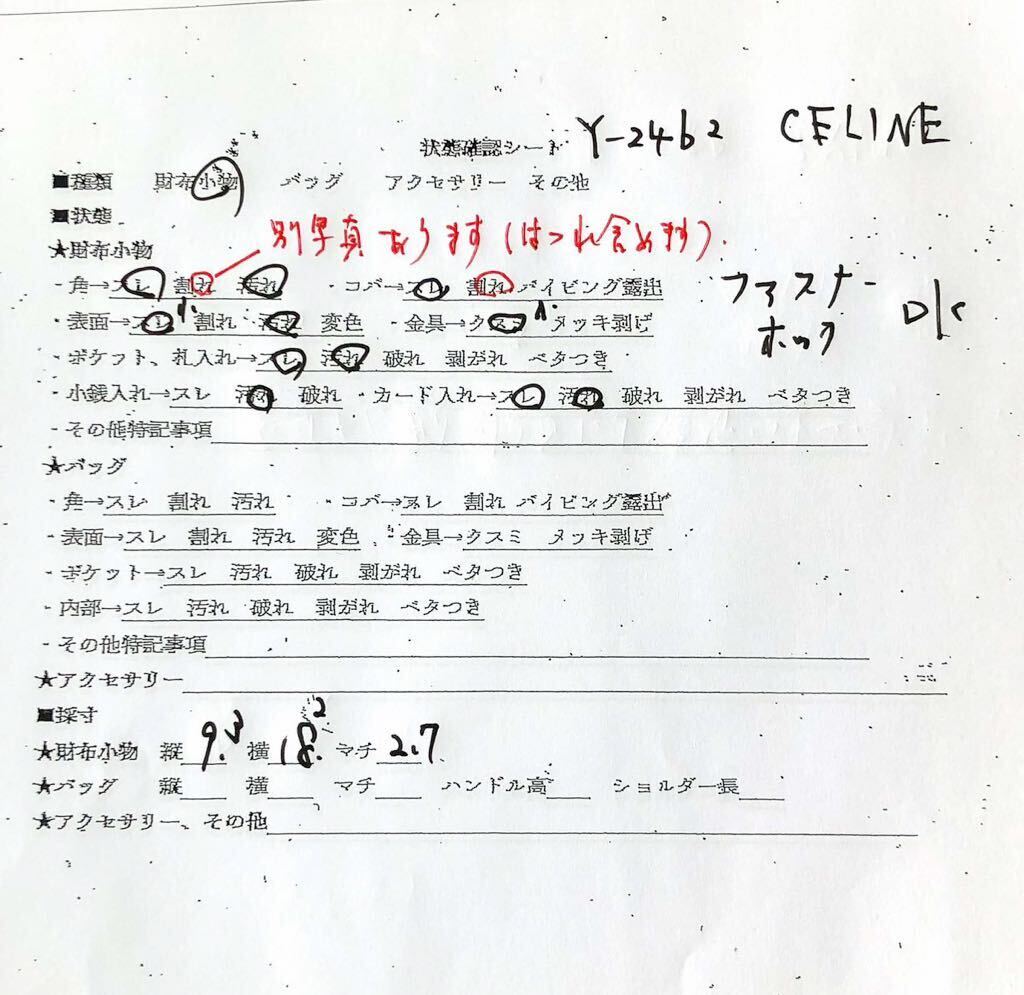 状態確認シート Y-2462 CELINE
■種類 財布小物 バッグ アクセサリー その他
■状態
別写真あります(ほつれ含めます).
★財布小物
・角→スレ 割れ 汚れ ・コバ→スレ 割れ パイピング露出
ファスナー
ホック
・表面→スレ 小 割れ 汚れ 変色 ・金具→クスミ 小 メッキ剥げ
・ポケット、札入れ→スレ 汚れ 破れ 剥がれ ベタつき
・小銭入れ→スレ 汚れ 破れ ・カード入れ→スレ 汚れ 破れ 剥がれ ベタつき
・その他特記事項
★バッグ
・角→スレ 割れ 汚れ ・コバ→スレ 割れ パイピング露出
・表面→スレ 割れ 汚れ 変色 ・金具→クスミ メッキ剥げ
・ポケット→スレ 汚れ 破れ 剥がれ ベタつき
・内部→スレ 汚れ 破れ 剥がれ ベタつき
・その他特記事項
★アクセサリー
■採寸
★財布小物 縦 9.3 横 18.2 マチ 2.7
★バッグ 縦 横 マチ ハンドル高 ショルダー長
★アクセサリー、その他